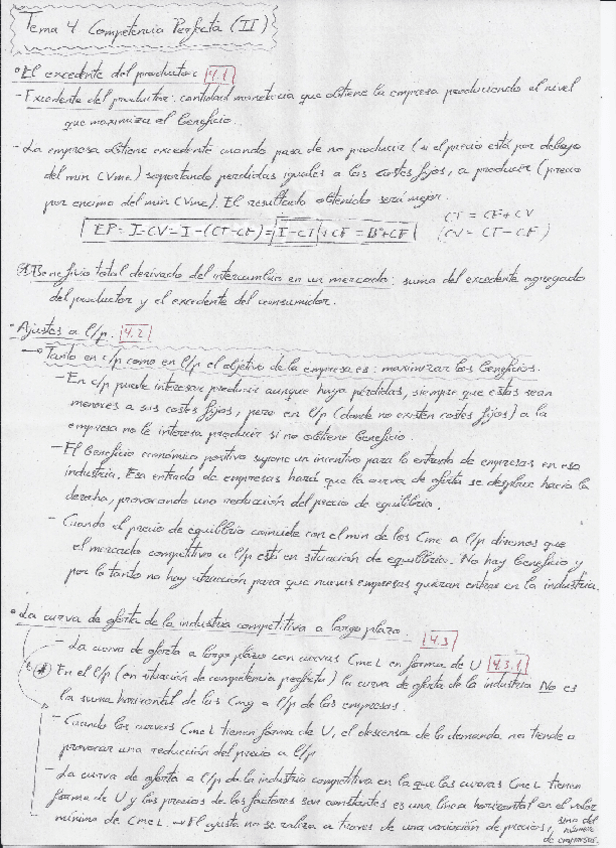 Tema 4 Competencia Perfecta (II)
• El excedente del productor: 4.1
- Excedente del productor: cantidad monetaria que obtiene la empresa produciendo el nivel
que maximiza el beneficio.
- La empresa obtiene excedente cuando pasa de no producir (si el precio está por debajo
del min CVme) soportando perdidas iguales a los costes fijos, a producir (precio
por encima del min CVme). El resultado obtenido será mejor.
EP = I-CV = I-(CT-CF) = I-CT + CF = B+CF
CT = CF+CV
(CV = CT-CF)
Beneficio total derivado del intercambio en un mercado: suma del excedente agregado
del productor y el excedente del consumidor.
- Ajustes a l/p: 4.2
→ Tanto en c/p como en l/p el objetivo de la empresa es: maximizar los beneficios.
- En c/p puede interesar producir aunque haya pérdidas, siempre que estas sean
menores a sus costes fijos, pero en l/p (donde no existen costes fijos) a la
empresa no le interesa producir si no obtiene beneficio.
- El beneficio económico positivo supone un incentivo para la entrada de empresas en esa
industria. Esa entrada de empresas hará que la curva de oferta se desplace hacia la
derecha, provocando una reducción del precio de equilibrio.
- Cuando el precio de equilibrio coincide con el min de los Cme a l/p diremos que
el mercado competitivo a l/p está en situación de equilibrio. No hay beneficio y
por lo tanto no hay atracción para que nuevas empresas quieran entrar en la industria.
• La curva de oferta de la industria competitiva a largo plazo: 4.3
- La curva de oferta a largo plazo con curvas CmeL en forma de U 4.3.1
* En el l/p (en situación de competencia perfecta) la curva de oferta de la industria No es
la suma horizontal de los Cmg a l/p de las empresas.
- Cuando las curvas CmeL tienen forma de U, el descenso de la demanda no tiende a
provocar una reducción del precio a l/p
- La curva de oferta a l/p de la industria competitiva en la que las curvas CmeL tienen
forma de U y los precios de los factores son constantes es una línea horizontal en el valor
mínimo de CmeL → El ajuste no se realiza a traves de una variación de precios, sino del
número
de empresas.